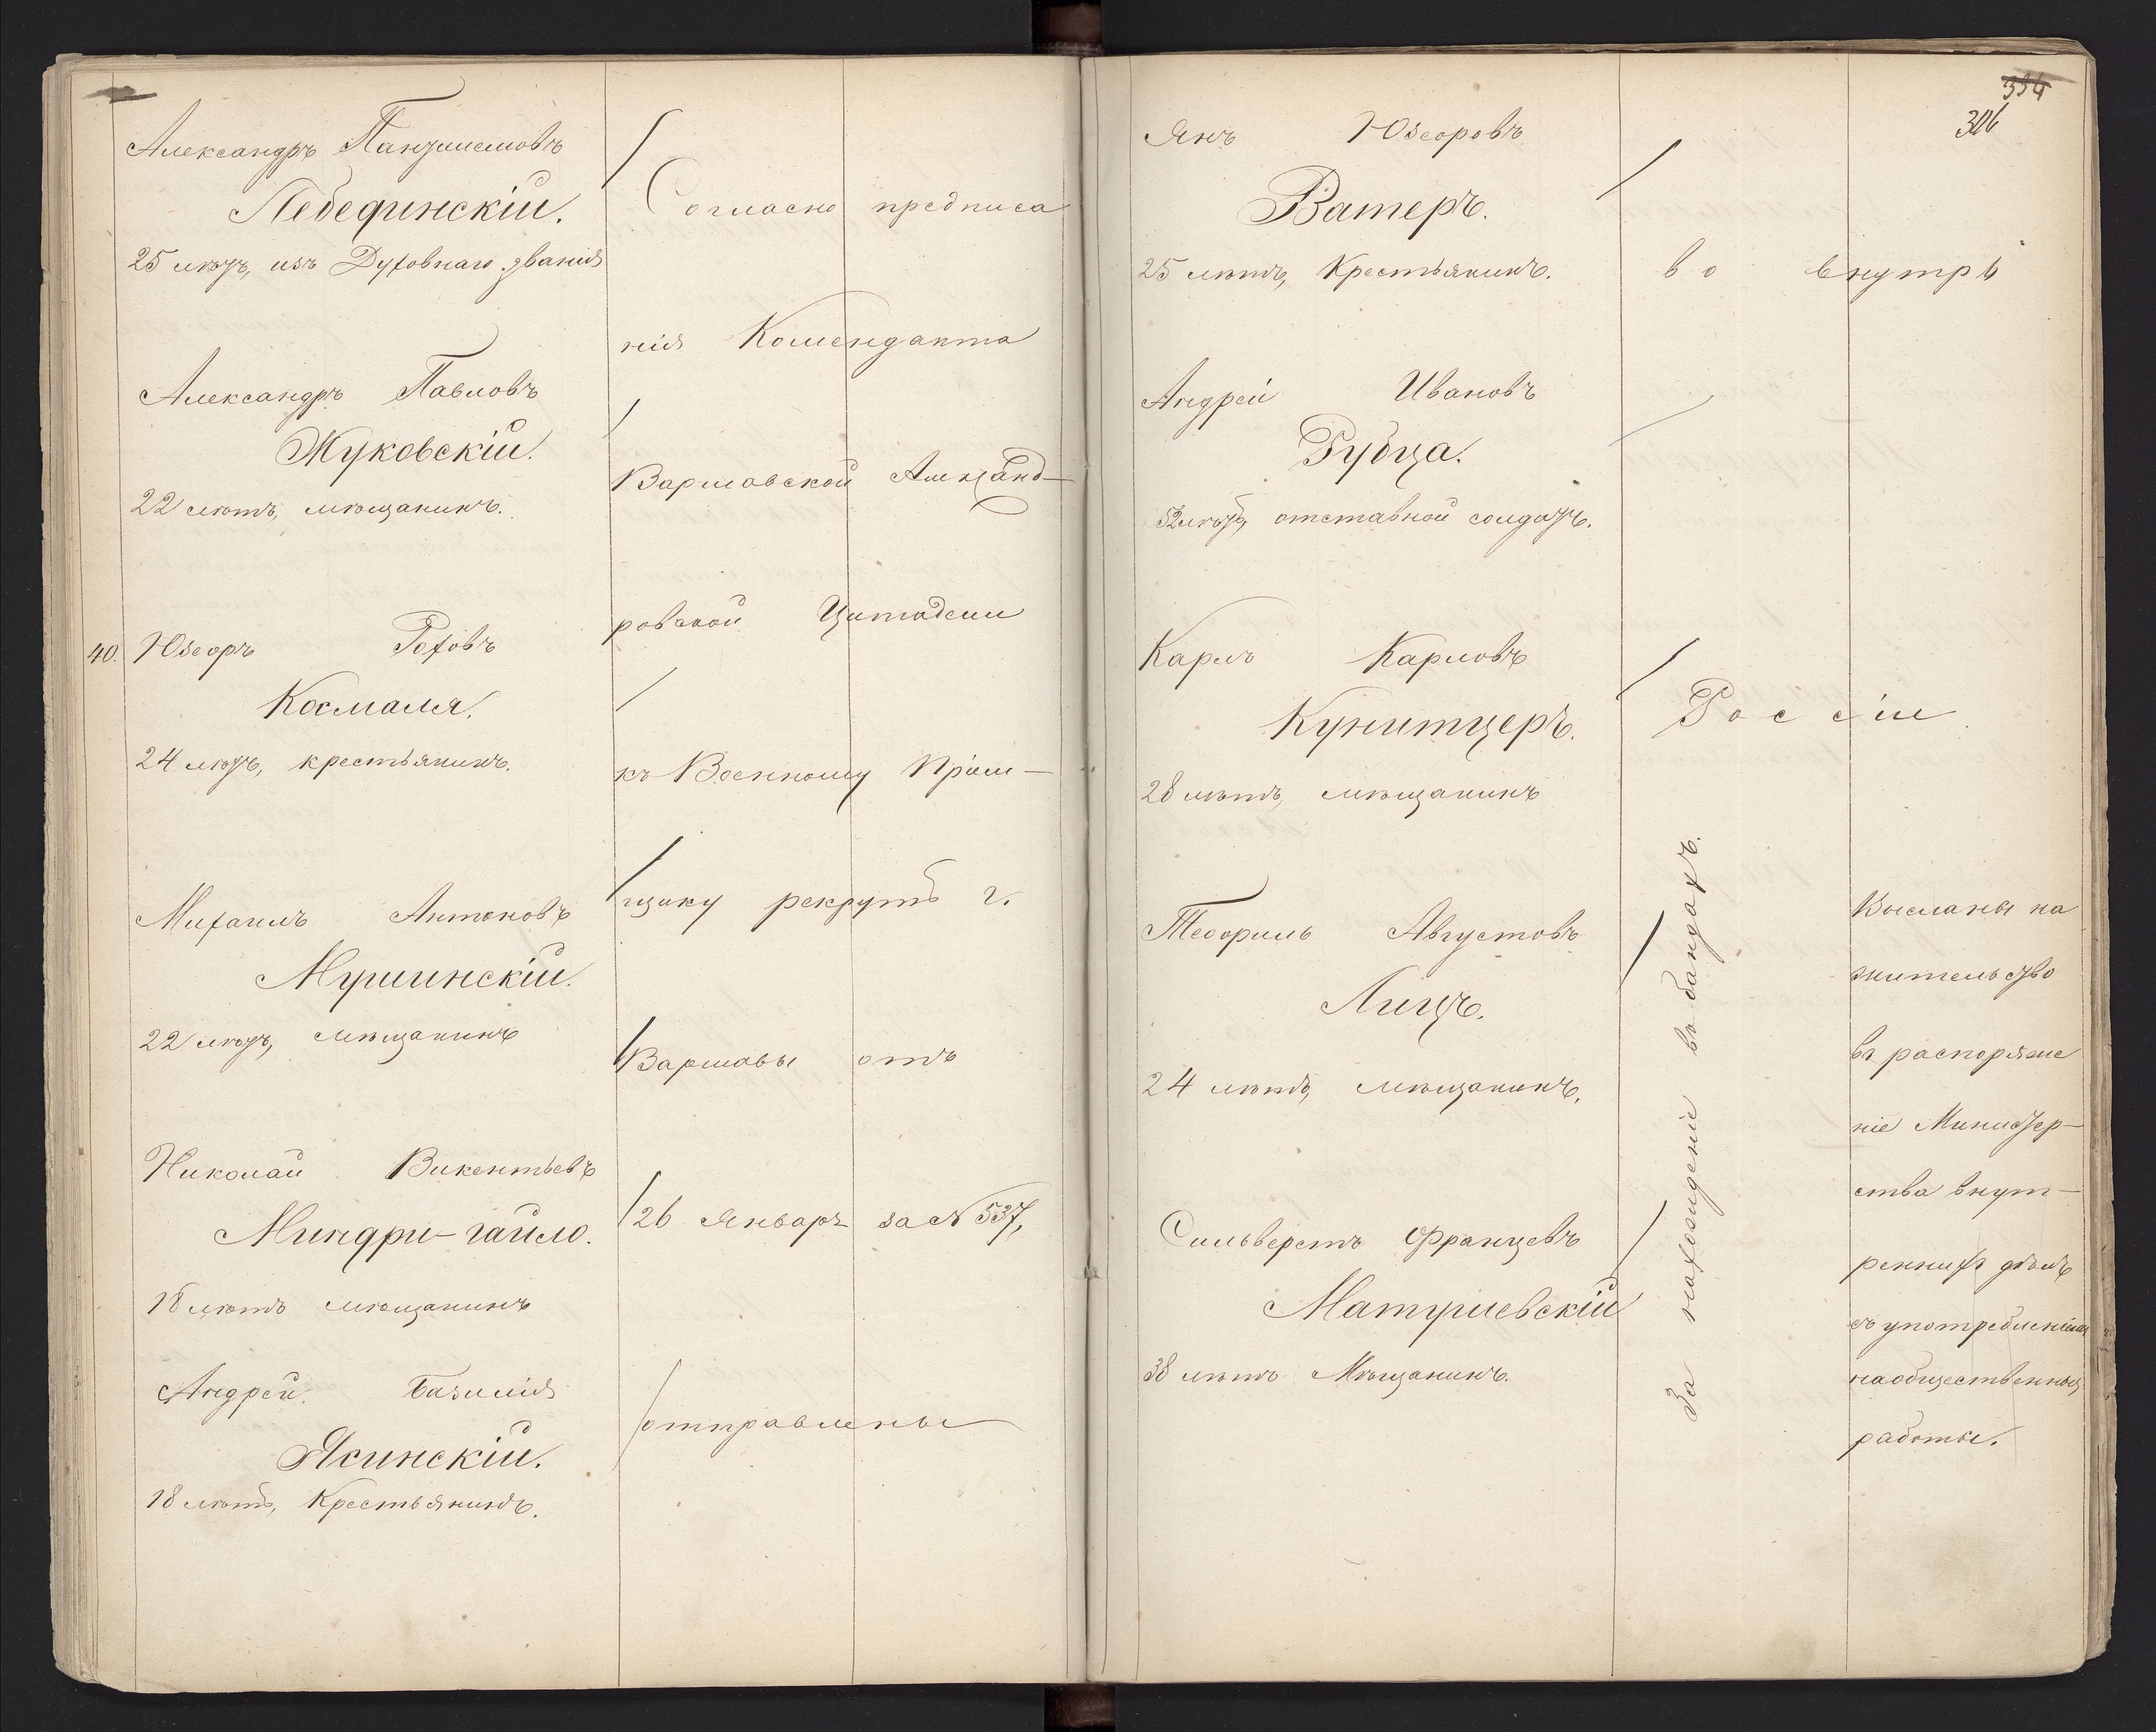 Александръ
Лебединскій.
25 лѣтъ, изъ Духовнаго званія
Александръ Павловъ
Жуковскій.
22 лѣтъ, мѣщанинъ.
40. Юзефъ Роховъ
Космаля.
24 лѣтъ, крестьянинъ.
Михаилъ Антоновъ
Мушинскій.
22 лѣтъ, мѣщанинъ
Николай Викентьевъ
Миндри-гайло.
18 лѣтъ мѣщанинъ
Андрей Базилія
Ясинскій.
18 лѣтъ, Крестьянинъ.
Согласно предписа
нія Коменданта
Варшавской Алксанд-
ровской Цитадели
къ Военному Пріем-
щику рекрутъ г.
Варшавы отъ
26 Январъ за N 537,
отправлены
334
306
Янъ Юзефовъ
Ватеръ.
25 лѣтъ, Крестьянинъ.
Андрей Ивановъ
Рубца.
52 лѣтъ, отставной солдатъ.
Карлъ Карловъ
Кунитцеръ.
28 лѣтъ, мѣщанинъ
Теофиль Августовъ
Лицъ.
24 лѣтъ, мѣщанинъ.
Сильверстъ Францевъ
Матушевскій
38 лѣтъ Мѣщанинъ.
во внутрь
Россіи
За нахожденіе въ бандахъ.
Высланы на
жительство
въ распоряже
ніе Министер-
ства внут-
реннихъ дѣлъ
съ употребленіемъ
на общественныя
работы.